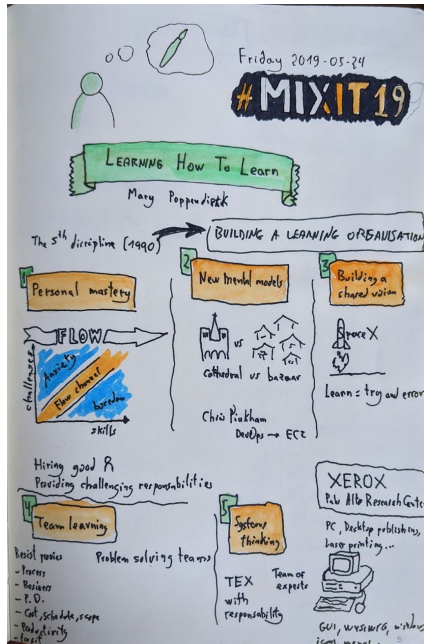 Friday 2019-05-24
#MIXIT19
LEARNING HOW TO LEARN
Mary Poppendieck
The 5th discipline (1990)
BUILDING A LEARNING ORGANISATION
1
Personal mastery
2
New mental models
3
Building a
shared vision
FLOW
challenges
Anxiety
Flow channel
boredom
skills
vs
cathedral vs bazaar
Chris Pinkham
DevOps → EC2
Space X
Learn = try and error
Hiring good
Providing challenging responsabilities
4
Team learning
Resist proxies
- Process
- Business
- P.O.
- Cost, schedule, scope
- Productivity
Problem solving teams
5
Systems
thinking
TEX
with
responsability
Team of
experts
XEROX
Palo Alto Research Cente
PC, Desktop publishing,
Laser printing...
GUI, WYSIWYG, windows